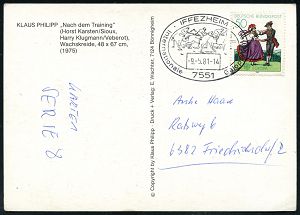 KLAUS PHILIPP „Nach dem Training"
(Horst Karsten/Sioux,
Harry Klugmann/Veberot),
Wachskreide, 48 x 67 cm,
(1975)
IFFEZHEIM
-9.5.81-14
7551
DEUTSCHE BUNDESPOST
SERIE 8
© Copyright by Klaus Philipp · Druck + Verlag: E. Wachter, 7124 Bönnigheim
Anke Haas
6382 Friedrichsdorf 2